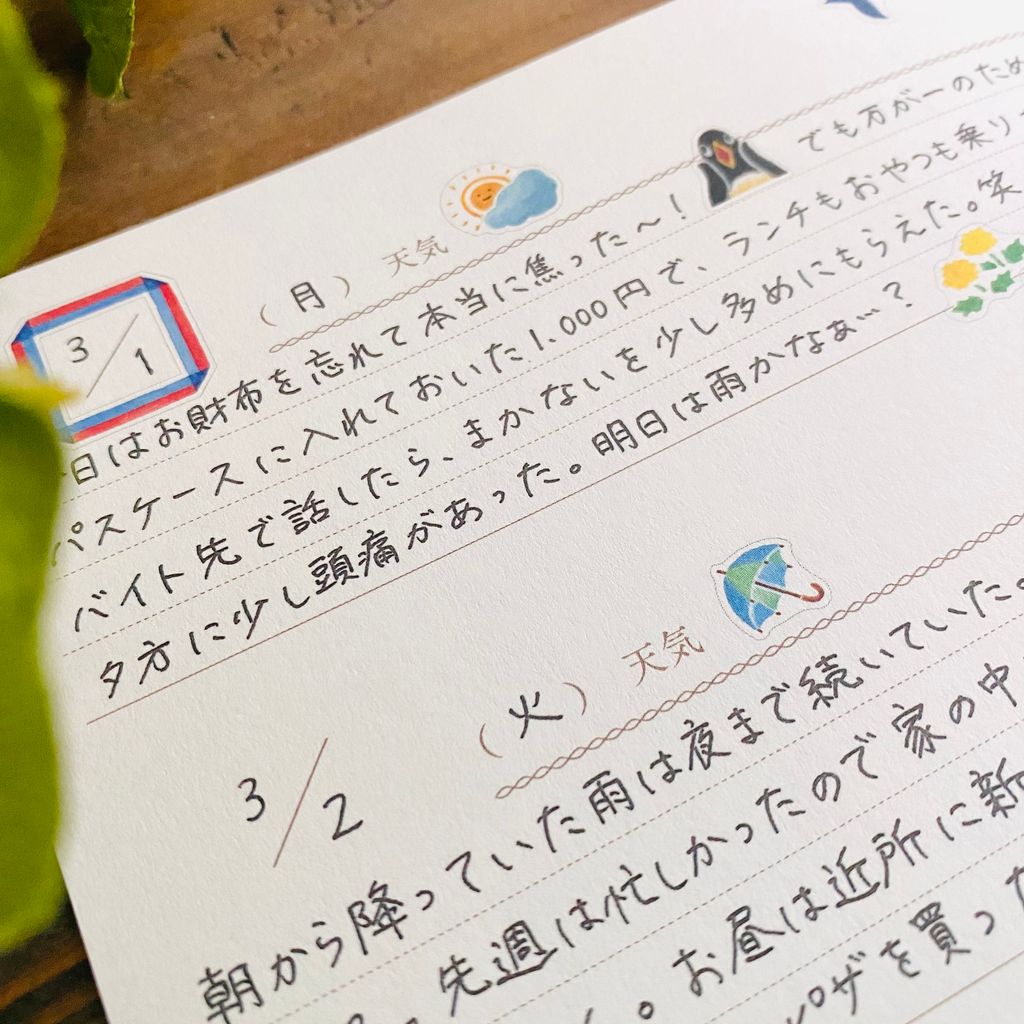 3/1
(月) 天気
日はお財布を忘れて本当に焦った〜! でも万が一のため
パスケースに入れておいた1.000円で、ランチもおやつも乗り
バイト先で話したら、まかないを少し多めにもらえた。笑
夕方に少し頭痛があった。明日は雨かなぁ…?
3/2
(火) 天気
朝から降っていた雨は夜まで続いていた。
先週は忙しかったので家の中
。お昼は近所に新
ピザを買った